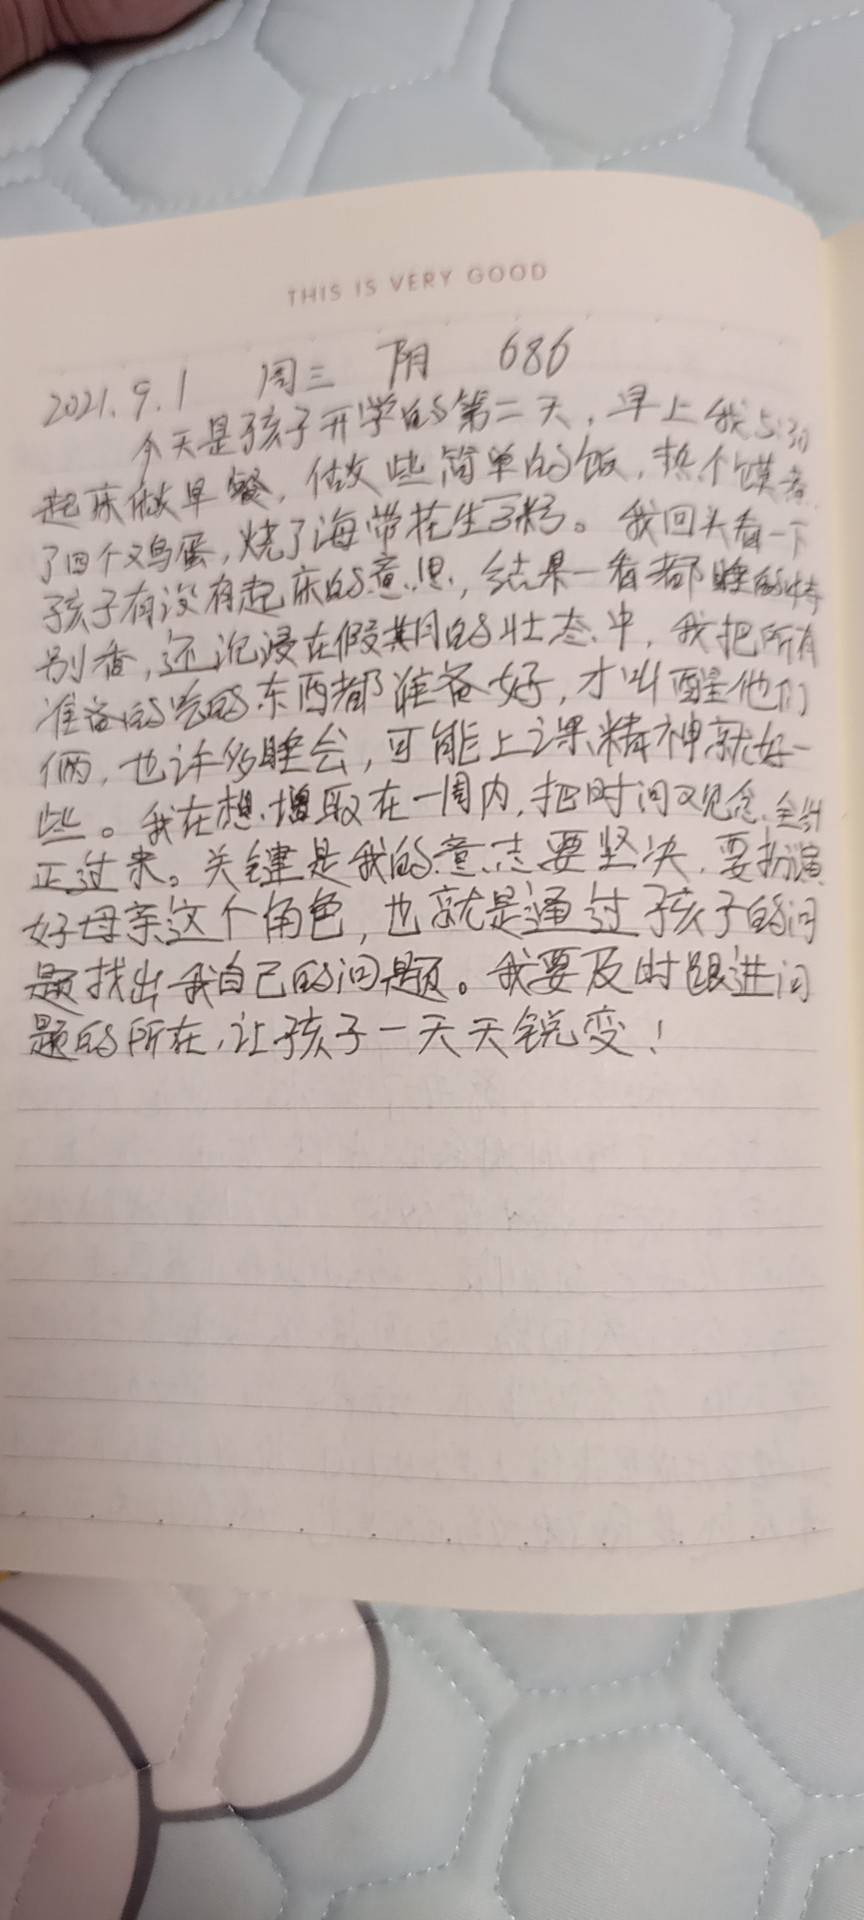 THIS IS VERY GOOD
2021.9.1 周三 阴 686
今天是孩子开学的第二天，早上我5:30
起床做早餐，做些简单的饭，热个馍煮
了四个鸡蛋，烧了海带花生豆粉。我回头看一下
孩子有没有起床的意思，结果一看都睡的特
别香，还沉浸在假期的状态中，我把所有
准备的吃的东西都准备好，才叫醒他们
俩，也许多睡会，可能上课精神就好一
些。我在想，增取在一周内，把时间观念全纠
正过来。关键是我的意志要坚决，要扮演
好母亲这个角色，也就是通过孩子的问
题找出我自己的问题。我要及时跟进问
题的所在，让孩子一天天锐变！